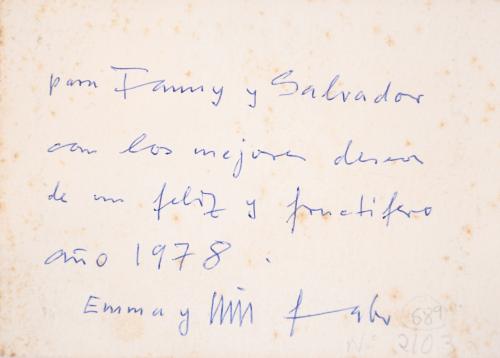 para Fanny y Salvador
con los mejores deseos
de un feliz y fructifero
año 1978 .
Emma y
689
Nº 2103